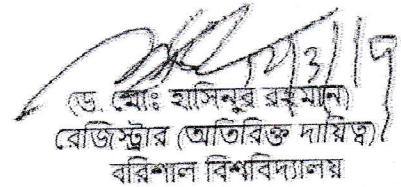 (ড. মোঃ হাসিনুর রহমান)
রেজিস্ট্রার (অতিরিক্ত দায়িত্ব)
বরিশাল বিশ্ববিদ্যালয়